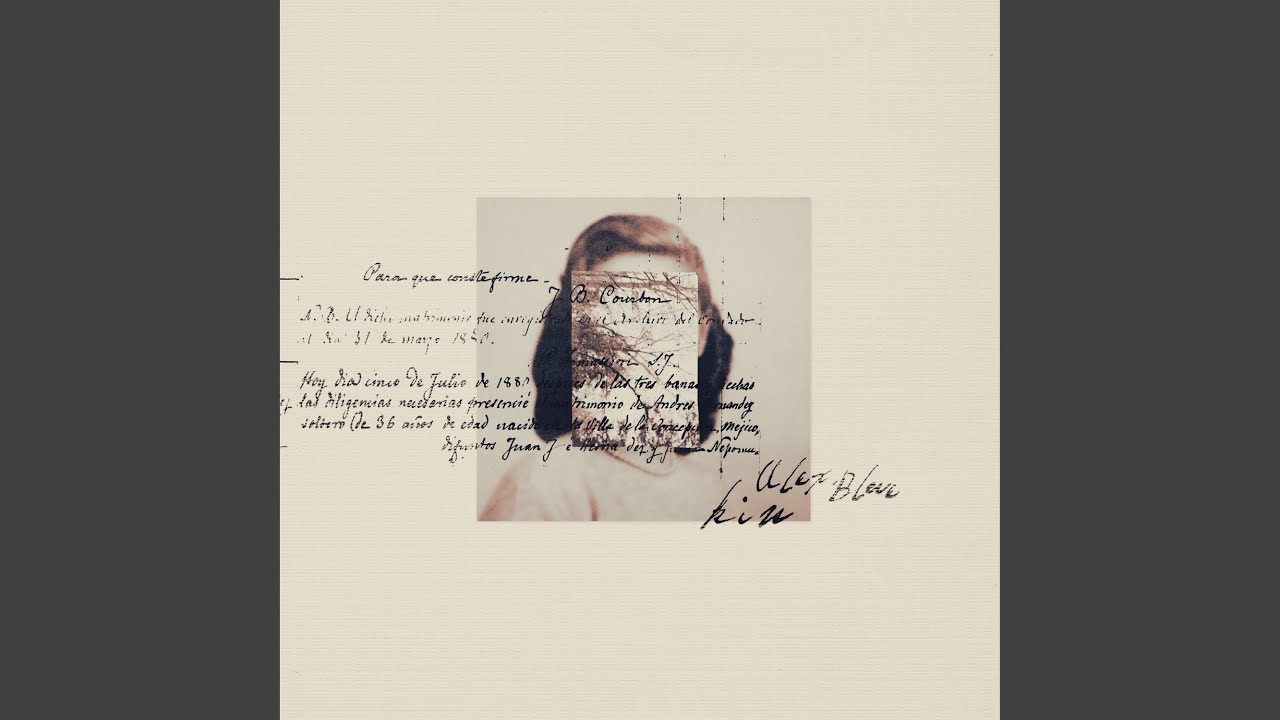 Para que conste firme
J. B. Courbon
N.B. El dicho matrimonio fue en el Archivo del Condado
el dia 31 de marzo 1880.
S.J.
Hoy dia cinco de Julio de 188 despues de las tres banas y hechas
las diligencias necesarias presencié el matrimonio de Andres Fernandez
soltero (de 36 años de edad nacido en la Villa de la Concepcion, Mejico,
difuntos Juan J e y Nepomu.
Alex Bleve
kin